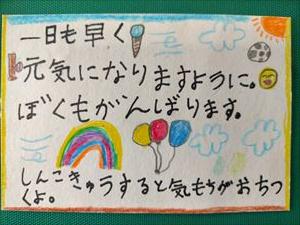 一日も早く
元気になりますように。
ぼくもがんばります。
しんこきゅうすると気もちがおちつ
くよ。